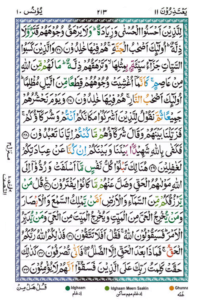 يَعْتَذِرُوْنَ ١١ ٢١٣ يُوْنُس ١٠
لِلَّذِيْنَ اَحْسَنُوا الْحُسْنٰى وَزِيَادَةٌ ؕ وَلَا يَرْهَقُ وُجُوْهَهُمْ قَتَرٌ وَّلَا
ذِلَّةٌ ؕ اُولٰٓئِكَ اَصْحٰبُ الْجَنَّةِ ۚ هُمْ فِيْهَا خٰلِدُوْنَ وَالَّذِيْنَ كَسَبُوا
السَّيِّاٰتِ جَزَآءُ سَيِّئَةٍۭ بِمِثْلِهَا ۙ وَتَرْهَقُهُمْ ذِلَّةٌ ؕ مَا لَهُمْ مِّنَ اللّٰهِ
مِنْ عَاصِمٍ ۚ كَاَنَّمَاۤ اُغْشِيَتْ وُجُوْهُهُمْ قِطَعًا مِّنَ الَّيْلِ مُظْلِمًا ؕ
اُولٰٓئِكَ اَصْحٰبُ النَّارِ ۚ هُمْ فِيْهَا خٰلِدُوْنَ وَيَوْمَ نَحْشُرُهُمْ
جَمِيْعًا ثُمَّ نَقُوْلُ لِلَّذِيْنَ اَشْرَكُوْا مَكَانَكُمْ اَنْتُمْ وَشُرَكَآؤُكُمْ ۚ
فَزَيَّلْنَا بَيْنَهُمْ وَقَالَ شُرَكَآؤُهُمْ مَّا كُنْتُمْ اِيَّانَا تَعْبُدُوْنَ
فَكَفٰى بِاللّٰهِ شَهِيْدًۢا بَيْنَنَا وَبَيْنَكُمْ اِنْ كُنَّا عَنْ عِبَادَتِكُمْ
لَغٰفِلِيْنَ هُنَالِكَ تَبْلُوْا كُلُّ نَفْسٍ مَّاۤ اَسْلَفَتْ وَرُدُّوْۤا اِلَى
اللّٰهِ مَوْلٰىهُمُ الْحَقِّ وَضَلَّ عَنْهُمْ مَّا كَانُوْا يَفْتَرُوْنَ قُلْ مَنْ
يَّرْزُقُكُمْ مِّنَ السَّمَآءِ وَالْاَرْضِ اَمَّنْ يَّمْلِكُ السَّمْعَ وَالْاَبْصَارَ
وَمَنْ يُّخْرِجُ الْحَيَّ مِنَ الْمَيِّتِ وَيُخْرِجُ الْمَيِّتَ مِنَ الْحَيِّ وَمَنْ يُّدَبِّرُ
الْاَمْرَ ؕ فَسَيَقُوْلُوْنَ اللّٰهُ ۚ فَقُلْ اَفَلَا تَتَّقُوْنَ فَذٰلِكُمُ اللّٰهُ رَبُّكُمُ
الْحَقُّ ۚ فَمَاذَا بَعْدَ الْحَقِّ اِلَّا الضَّلٰلُ ۚ فَاَنّٰى تُصْرَفُوْنَ كَذٰلِكَ
حَقَّتْ كَلِمَتُ رَبِّكَ عَلَى الَّذِيْنَ فَسَقُوْۤا اَنَّهُمْ لَا يُؤْمِنُوْنَ
Idghaam
Idghaam Meem Saakin
Ghunna